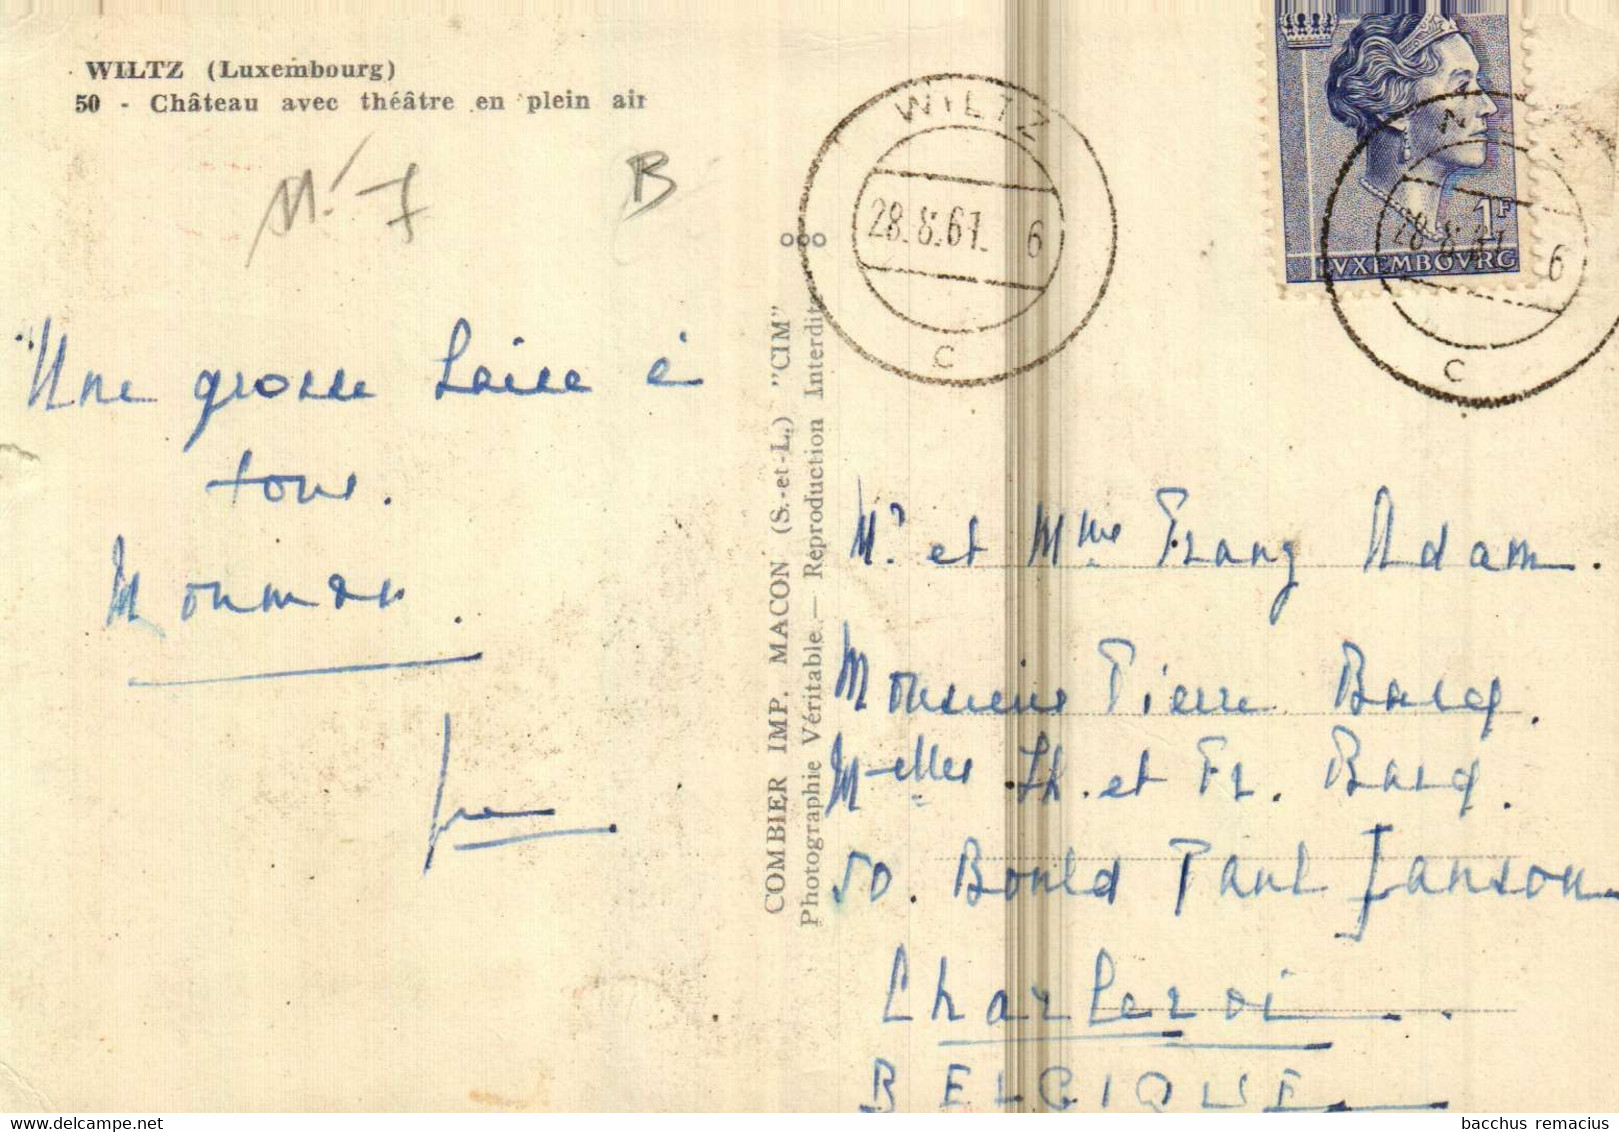 WILTZ (Luxembourg)
50 - Château avec théâtre en plein air
N° 7
B
Une grosse baise à
tous.
Monman.
COMBIER IMP. MACON (S.-et-L.) "CIM"
Photographie Véritable. — Reproduction Interdite
WILTZ
28.8.61. 6
C
1F
LUXEMBOURG
6
C
Mr et Mme Franz Adam.
Monsieur Pierre Barcq.
Melles Th. et Fr. Barcq.
50. Bould Paul Janson
Charleroi.
BELGIQUE
bacchus remacius